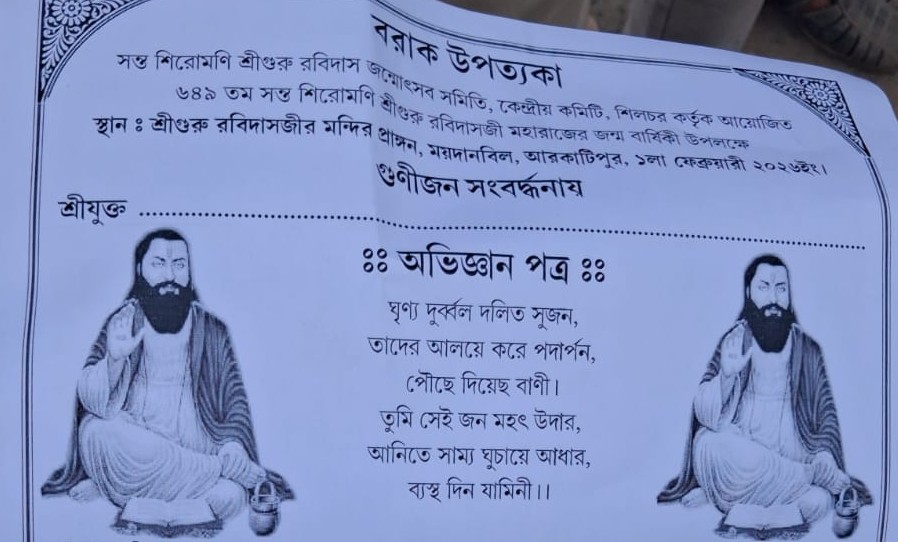 বরাক উপত্যকা
সন্ত শিরোমণি শ্রীগুরু রবিদাস জন্মোৎসব সমিতি, কেন্দ্রীয় কমিটি, শিলচর কর্তৃক আয়োজিত
৬৪৯ তম সন্ত শিরোমণি শ্রীগুরু রবিদাসজী মহারাজের জন্ম বার্ষিকী উপলক্ষে
স্থান ঃ শ্রীগুরু রবিদাসজীর মন্দির প্রাঙ্গন, ময়দানবিল, আরকাটিপুর, ১লা ফেব্রুয়ারী ২০২৬ইং।
গুণীজন সংবর্দ্ধনায়
শ্রীযুক্ত ........................................................................
ঃঃ অভিজ্ঞান পত্র ঃঃ
ঘৃণ্য দুর্ব্বল দলিত সুজন,
তাদের আলয়ে করে পদার্পন,
পৌছে দিয়েছ বাণী।
তুমি সেই জন মহৎ উদার,
আনিতে সাম্য ঘুচায়ে আধার,
ব্যস্থ দিন যামিনী।।